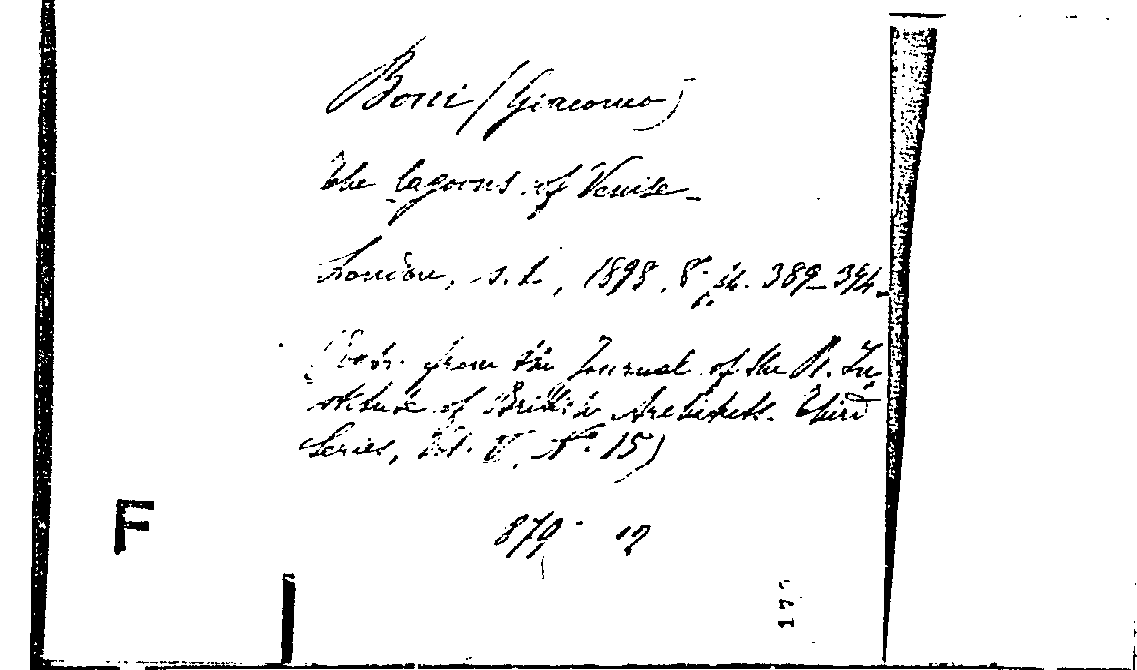 Boni (Giacomo)
The lagoons of Venise -
London, s.d., 1898. 8º pp. 389-394.
from the Journal of the R. In-
stitute of British Architects. Third
Series, Vol. V. Nº 15)
879 12
F
177